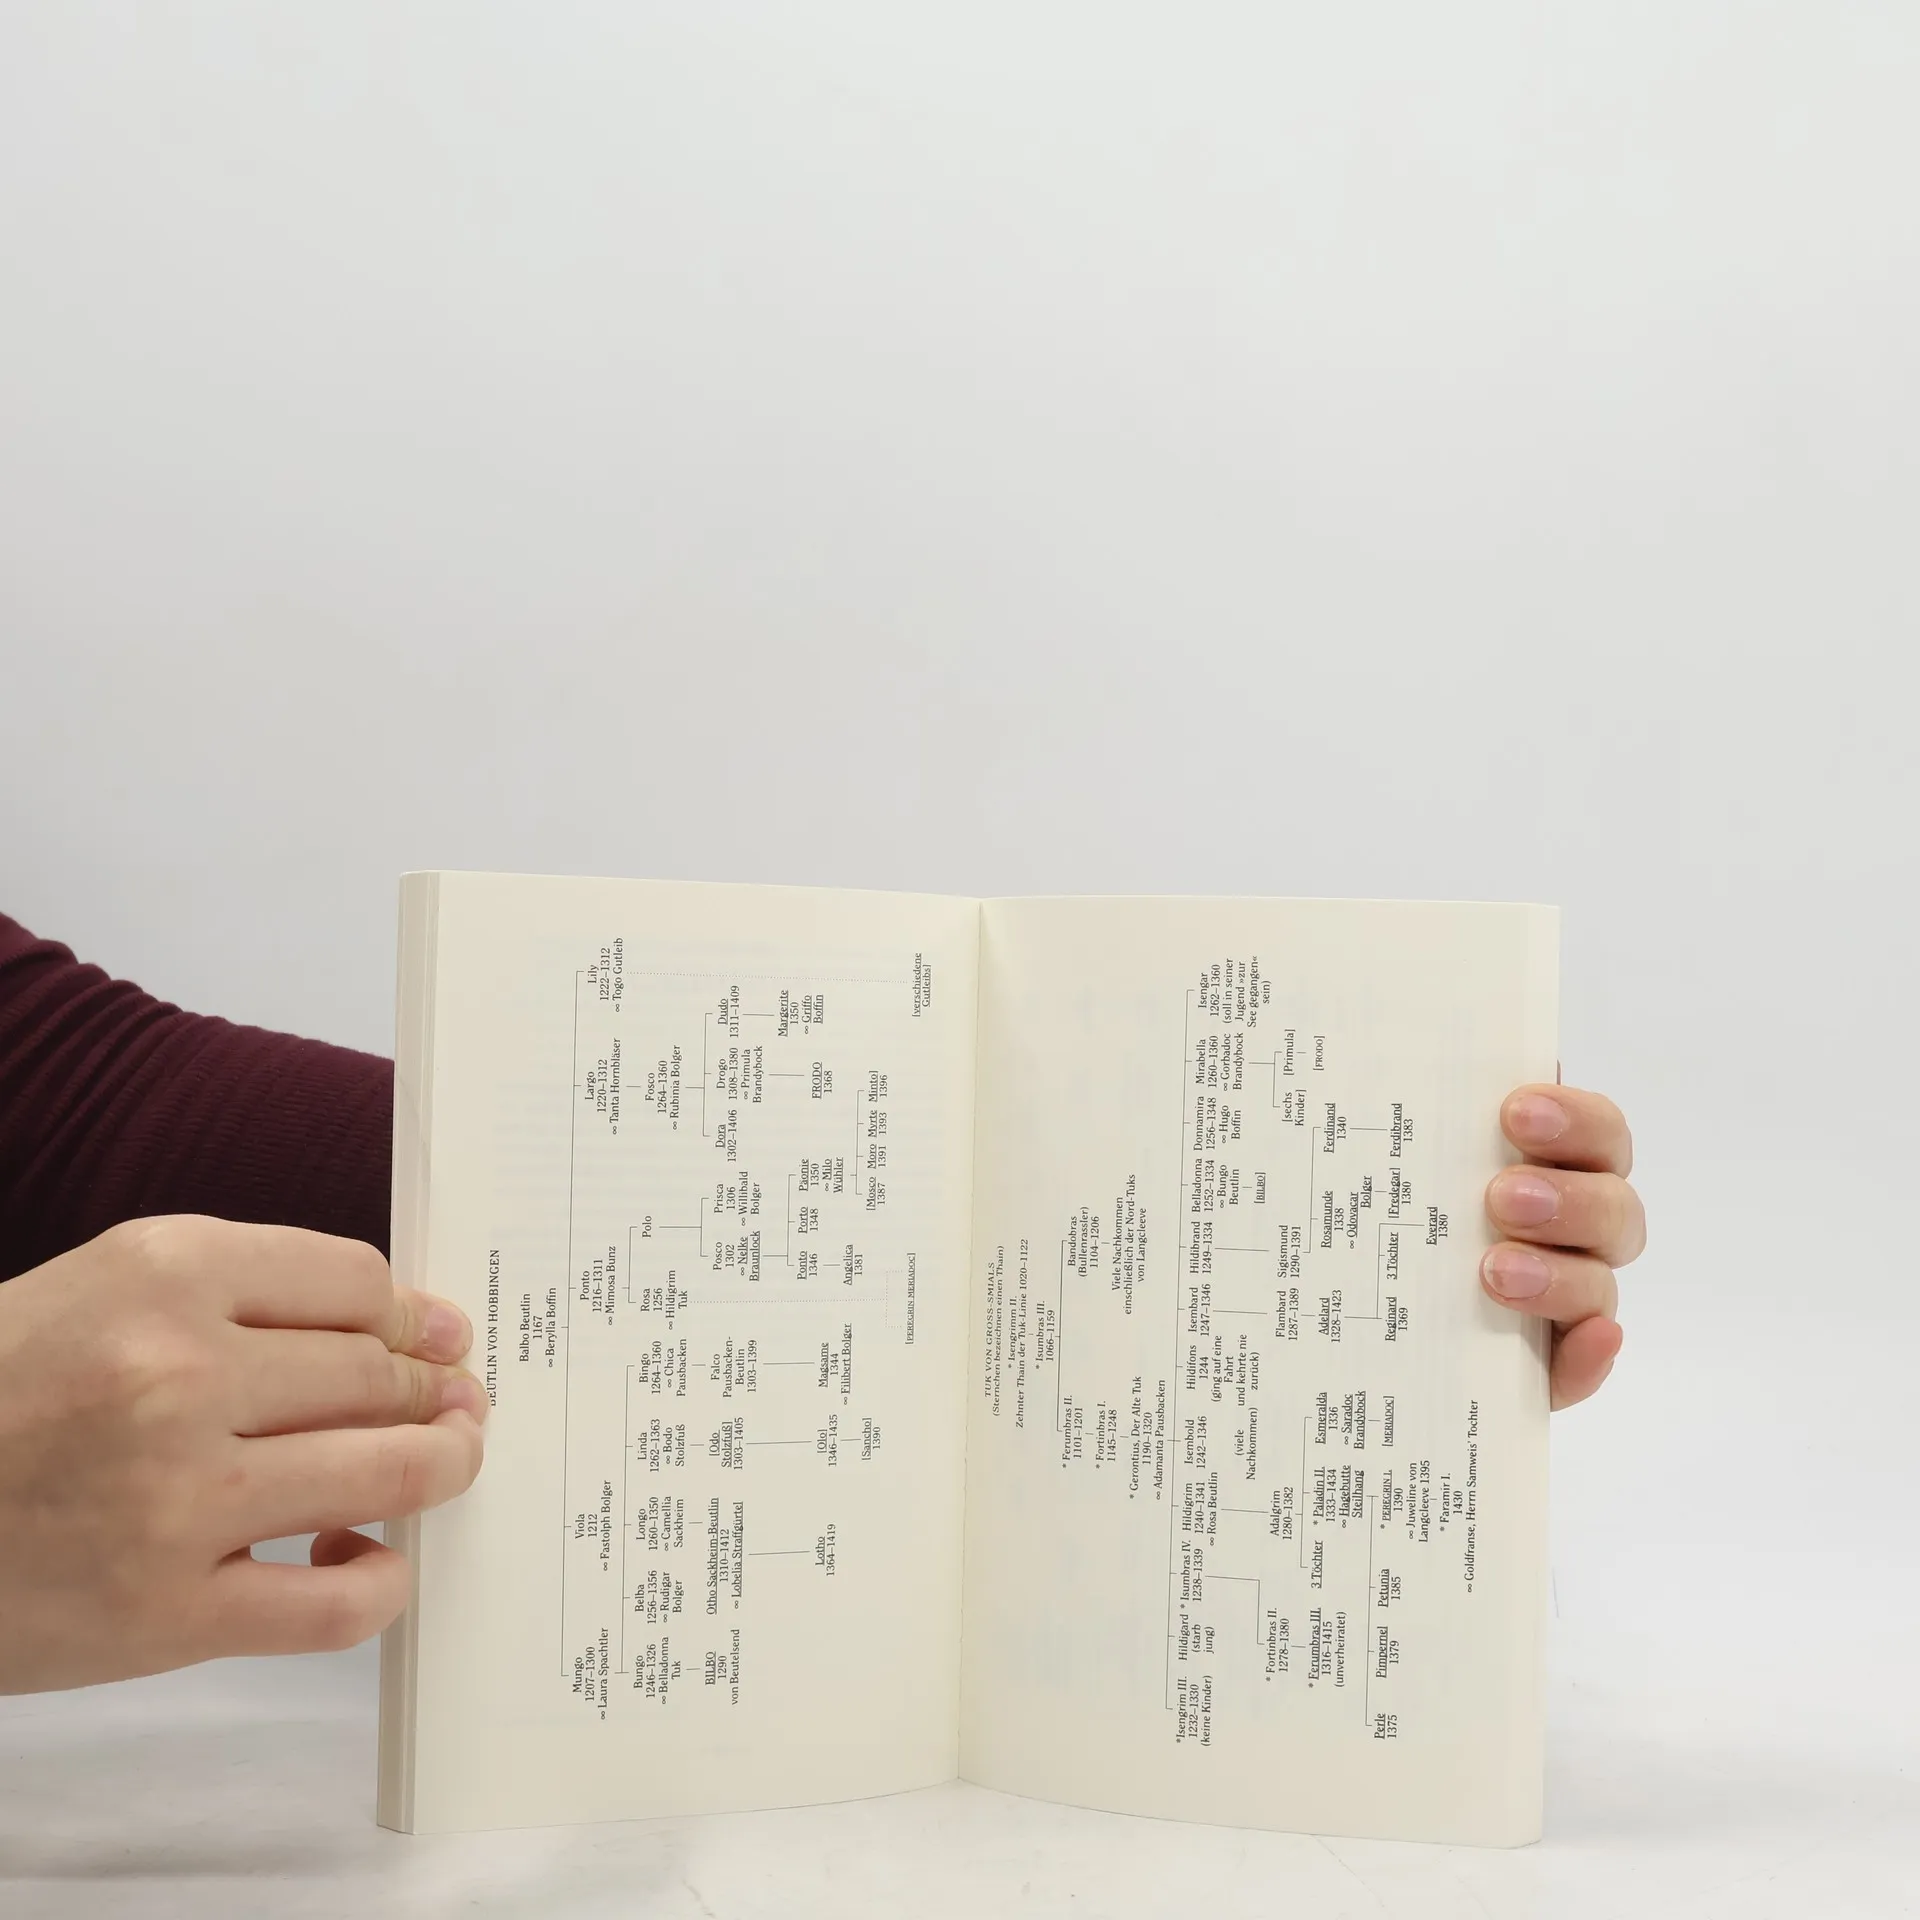 BEUTLIN VON HOBBINGEN
Balbo Beutlin
1167
∞ Berylla Boffin
Mungo
1207–1300
∞ Laura Spachtler
Viola
1212
∞ Fastolph Bolger
Ponto
1216–1311
∞ Mimosa Bunz
Largo
1220–1312
∞ Tanta Hornbläser
Lily
1222–1312
∞ Togo Gutleib
Bungo
1246–1326
∞ Belladonna
Tuk
Belba
1256–1356
∞ Rudigar
Bolger
Longo
1260–1350
∞ Camellia
Sackheim
Linda
1262–1363
∞ Bodo
Stolzfuß
Bingo
1264–1360
∞ Chica
Pausbacken
Rosa
1256
∞ Hildigrim
Tuk
Polo
Fosco
1264–1360
∞ Rubinia Bolger
BILBO
1290
von Beutelsend
Otho Sackheim-Beutlin
1310–1412
∞ Lobelia Straffgürtel
[Odo
Stolzfuß]
1303–1405
Falco
Pausbacken-
Beutlin
1303–1399
Posco
1302
∞ Nelke
Braunlock
Prisca
1306
∞ Willibald
Bolger
Dora
1302–1406
Drogo
1308–1380
∞ Primula
Brandybock
Dudo
1311–1409
Lotho
1364–1419
[Olo]
1346–1435
Magsame
1344
∞ Filibert Bolger
Ponto
1346
Porto
1348
Päonie
1350
∞ Milo
Wühler
FRODO
1368
Margerite
1350
∞ Griffo
Boffin
[Sancho]
1390
Angelica
1381
[Mosco
1387
Moro
1391
Myrte
1393
Minto]
1396
[PEREGRIN MERIADOC]
[verschiedene
Gutleibs]
TUK VON GROSS-SMIALS
(Sternchen bezeichnen einen Thain)
* Isengrimm II.
Zehnter Thain der Tuk-Linie 1020–1122
* Isumbras III.
1066–1159
* Ferumbras II.
1101–1201
Bandobras
(Bullenrassler)
1104–1206
* Fortinbras I.
1145–1248
Viele Nachkommen
einschließlich der Nord-Tuks
von Langcleeve
* Gerontius, Der Alte Tuk
1190–1320
∞ Adamanta Pausbacken
*Isengrim III.
1232–1330
(keine Kinder)
Hildigard
(starb
jung)
* Isumbras IV.
1238–1339
Hildigrim
1240–1341
∞ Rosa Beutlin
Isembold
1242–1346
(viele
Nachkommen)
Hildifons
1244
(ging auf eine
Fahrt
und kehrte nie
zurück)
Isembard
1247–1346
Hildibrand
1249–1334
Belladonna
1252–1334
∞ Bungo
Beutlin
[BILBO]
Donnamira
1256–1348
∞ Hugo
Boffin
Mirabella
1260–1360
∞ Gorbadoc
Brandybock
Isengar
1262–1360
(soll in seiner
Jugend »zur
See gegangen«
sein)
* Fortinbras II.
1278–1380
Adalgrim
1280–1382
Flambard
1287–1389
Sigismund
1290–1391
[sechs
Kinder]
[Primula]
[FRODO]
* Ferumbras III.
1316–1415
(unverheiratet)
3 Töchter
* Paladin II.
1333–1434
∞ Hagebutte
Steilhang
Esmeralda
1336
∞ Saradoc
Brandybock
Adelard
1328–1423
Rosamunde
1338
∞ Odovacar
Bolger
Ferdinand
1340
Perle
1375
Pimpernel
1379
Petunia
1385
* PEREGRIN I.
1390
∞ Juweline von
Langcleeve 1395
[MERIADOC]
Reginard
1369
3 Töchter
Everard
1380
[Fredegar]
1380
Ferdibrand
1383
* Faramir I.
1430
∞ Goldfranse, Herrn Samweis' Tochter